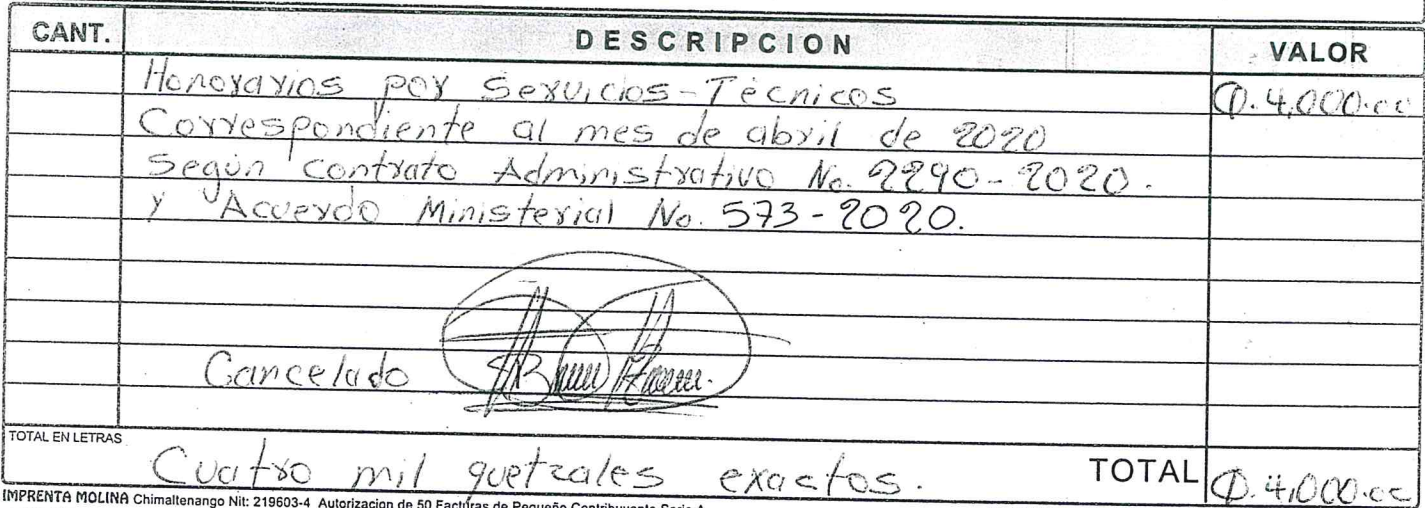 CANT. DESCRIPCION VALOR
Honorarios por Servicios-Técnicos Q. 4,000.00
Correspondiente al mes de abril de 2020
Según Contrato Administrativo No. 2290-2020.
y Acuerdo Ministerial No. 573-2020.
Cancelado
TOTAL EN LETRAS Cuatro mil quetzales exactos. TOTAL Q. 4,000.00
IMPRENTA MOLINA Chimaltenango Nit: 219603-4 Autorizacion de 50 Facturas de Pequeño Contribuyente Serie A